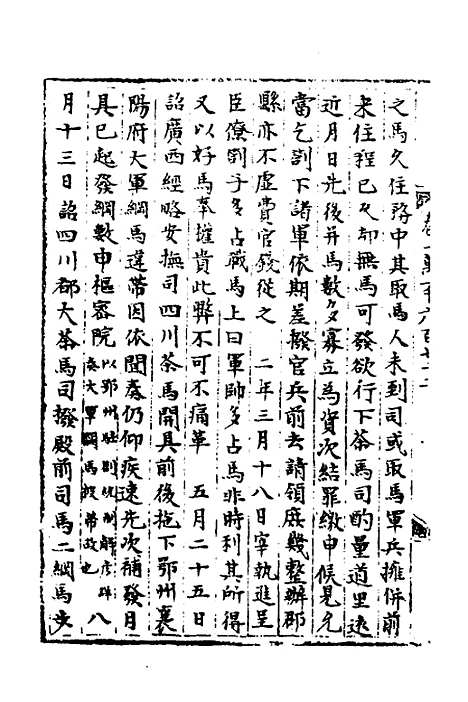 之馬久住程中其取馬人未到司或取馬軍兵擁併前
來住程已久却無馬可發欲行下茶馬司酌量道里遠
近月日先後并馬數多寡立為資次結罪繳申候見允
當乞劄下諸軍依期差撥官兵前去請領庶幾整辦郡
縣亦不虛費官錢從之 二年三月十八日宰執進呈
臣僚劄子多占職馬上曰軍帥多占馬非時利其所得
又以好馬奉權貴此弊不可不痛革 五月二十五日
詔廣西經略安撫司四川茶馬開具前後拖下鄂州襄
陽府大軍綱馬違滯因依聞奏仍仰疾速先次補發月
具已起發綱數申樞密院以鄂州駐劄統制解彥詳奏大軍綱馬投滯故也 八
月十三日詔四川都大茶馬司撥殿前司馬二綱馬步